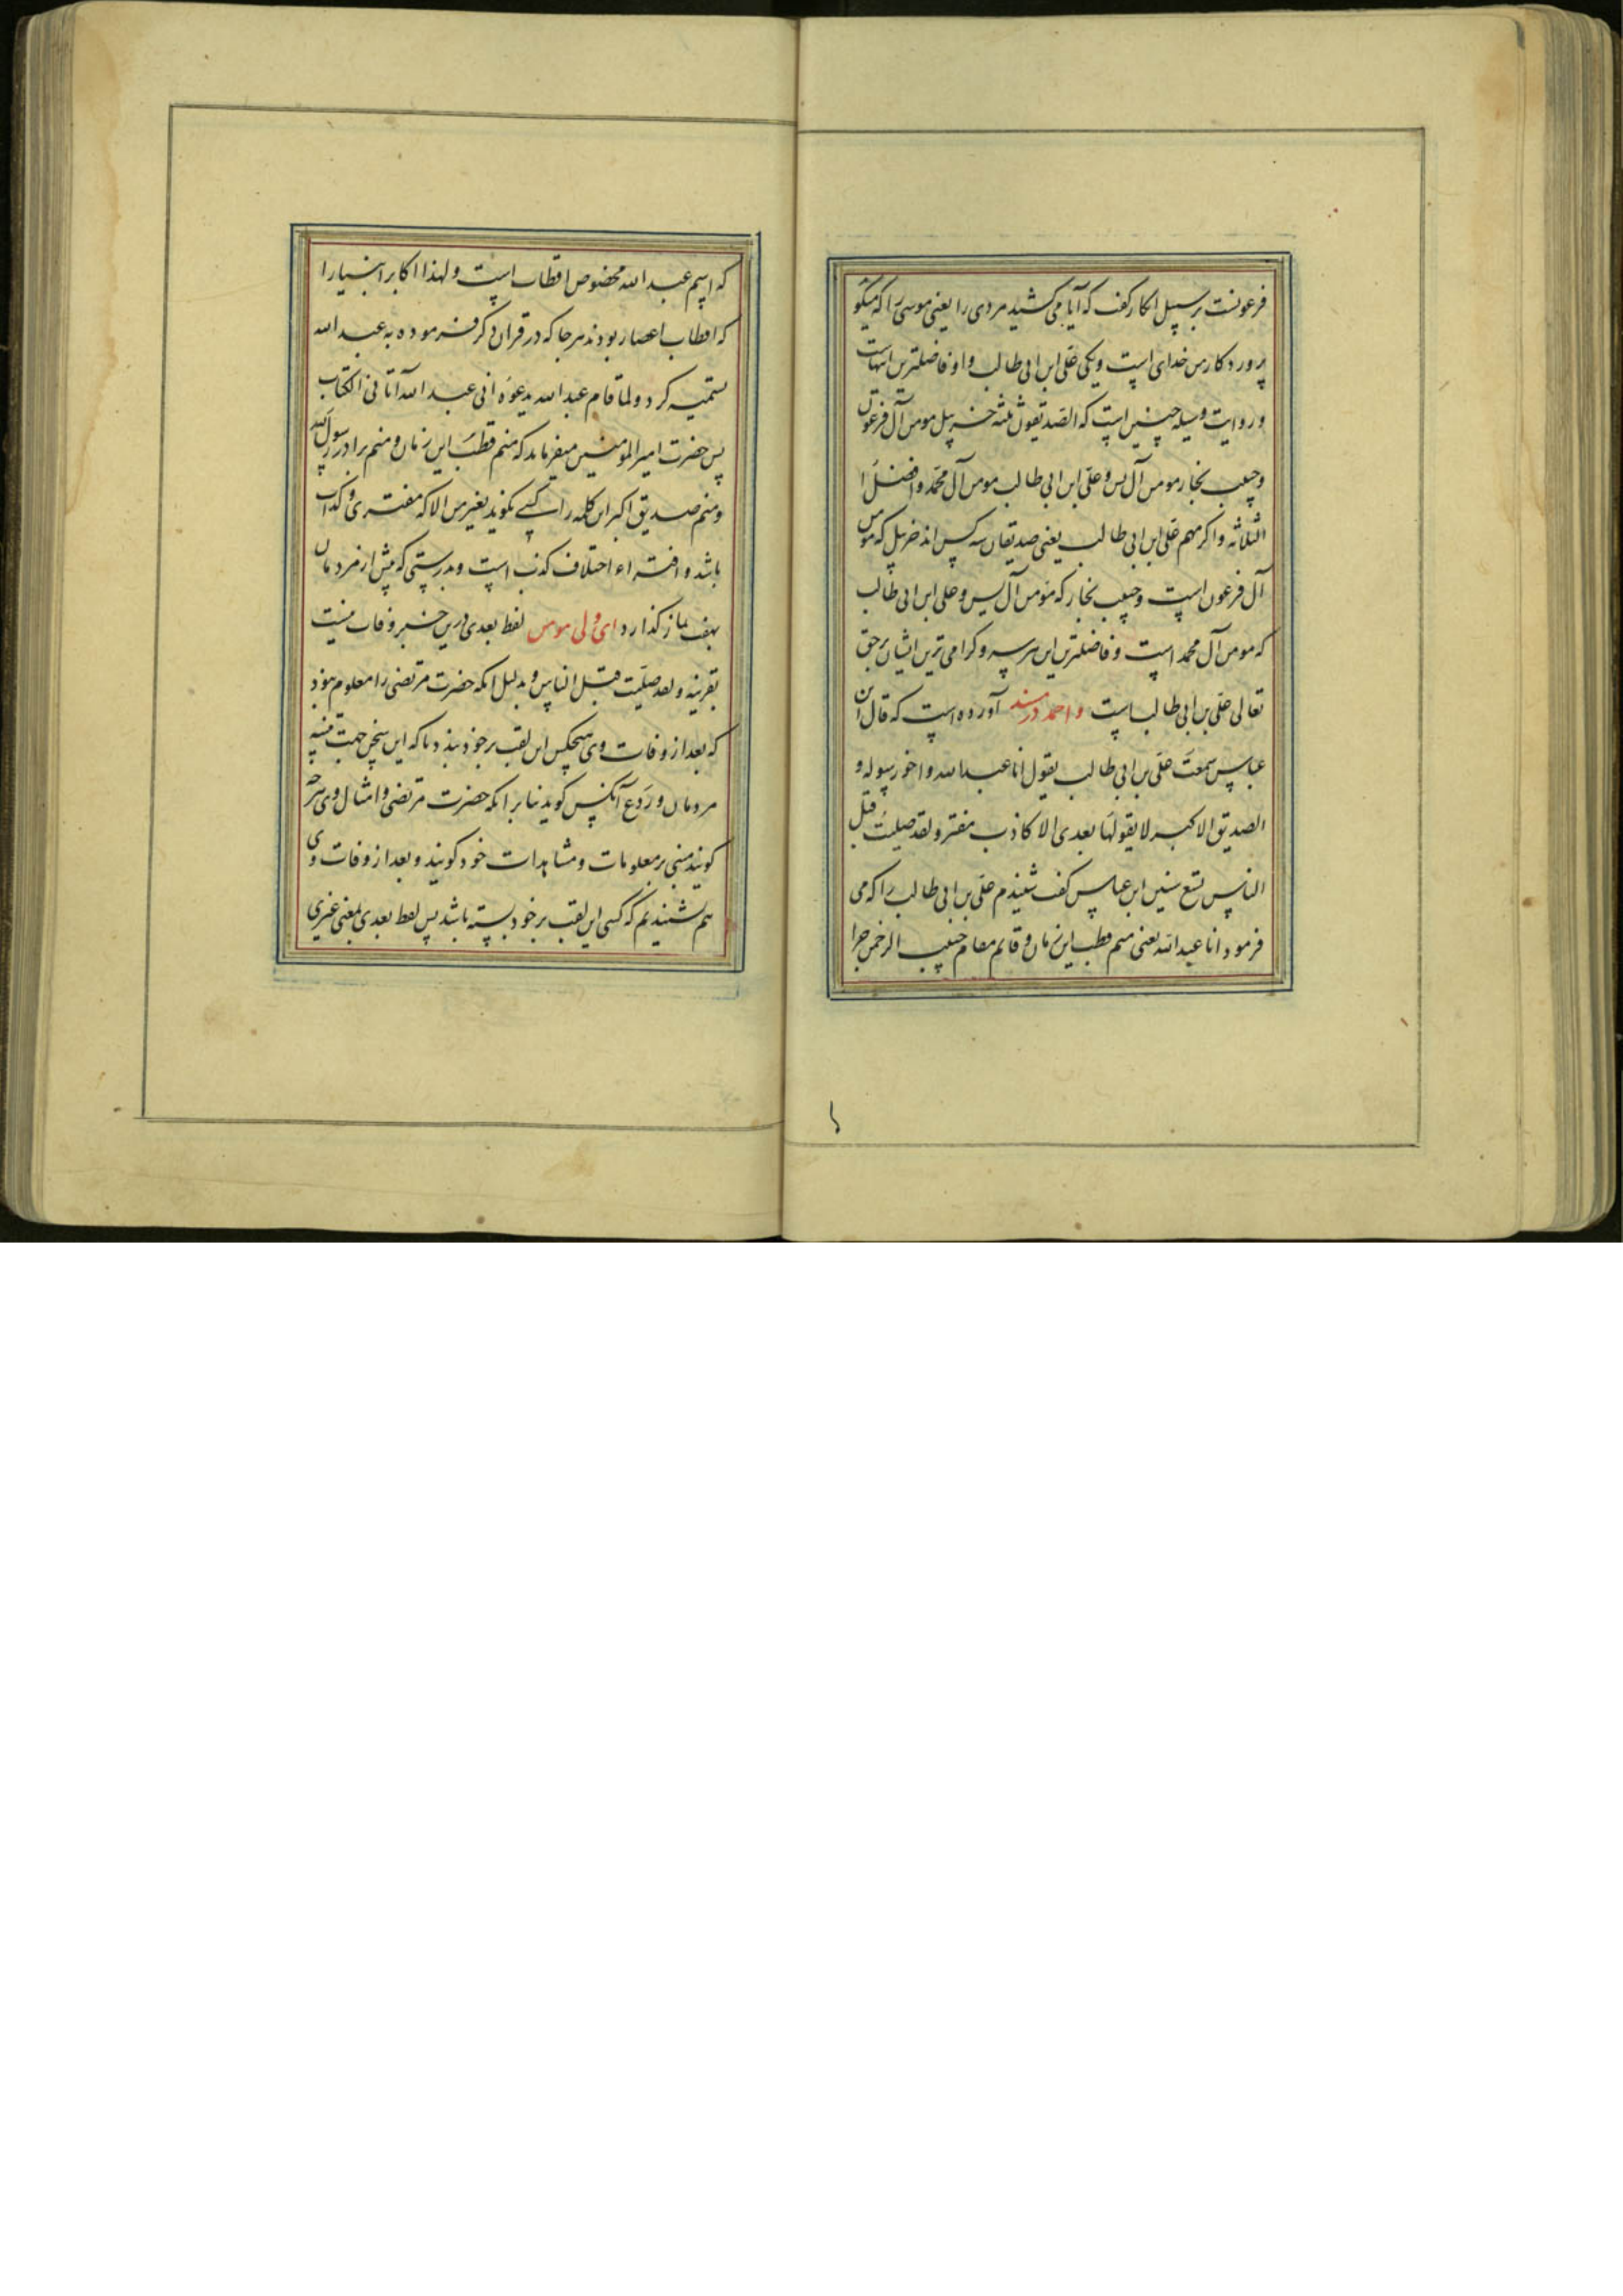 فرعونست بر سبیل انکار گفت که آیا می کشید مردی را یعنی موسی را که میگو
پروردکار من خدای است و یکی علی ابن ابی طالب و او فاضلترین اینهاست
و روایت وسیله چنین است که الصدیقون ثلثه خربیل مومن آل فرعون
و حبیب نجار مومن آل یس و علی ابن ابی طالب مومن آل محمد و افضل
الثلاثه و اکرمهم علی ابن ابی طالب یعنی صدیقان سه کس اند خربیل که مومن
آل فرعون است و حبیب نجار که مومن آل یس و علی ابن ابی طالب
که مومن آل محمد است و فاضلترین این هر سه و کرامی ترین ایشان بر حق
تعالی علی بن ابی طالب است و احمد در مسند آورده است که قال ابن
عباس سمعت علی بن ابی طالب یقول انا عبد الله و اخو رسوله و
الصدیق الاکبر لا یقولها بعدی الا کاذب مفتر و لقد صلیت قبل
الناس تسع سنین ابن عباس گفت شنیدم علی بن ابی طالب را که می
فرمود انا عبد الله یعنی منم قطب این زمان و قایم مقام حبیب الرحمن چرا
که اسم عبد الله مخصوص اقطاب است و لهذا اکابر انبیا را
که اقطاب اعصار بودند هر جا که در قران ذکر فرموده به عبد الله
تسمیه کرد و لما قام عبد الله یدعوه انی عبد الله آتانی الکتاب
پس حضرت امیر المومنین میفرماید که منم قطب این زمان و منم برادر رسول الله
و منم صدیق اکبر این کلمه را کسی نکوید بغیر من الا که مفتری و کذاب
باشد و افتراء اختلاف کذب است و بدرستی که پیش از مردمان
بهفت نماز کذارد ای ولی مومن لفظ بعدی درین خبر وفات نیست
بقرینه و لقد صلیت قبل الناس و بدلیل انکه حضرت مرتضی را معلوم بود
که بعد از وفات وی هیچکس این لقب بر خود نبندد تا که این سخن جهت تنبیه
مردمان و ردع آنکس کوید بنا بر انکه حضرت مرتضی و امثال وی هر چه
کویند مبنی بر معلومات و مشاهدات خود کویند و بعد از وفات وی
هم نشنیدیم که کسی این لقب بر خود بسته باشد پس لفظ بعدی بمعنی غیری